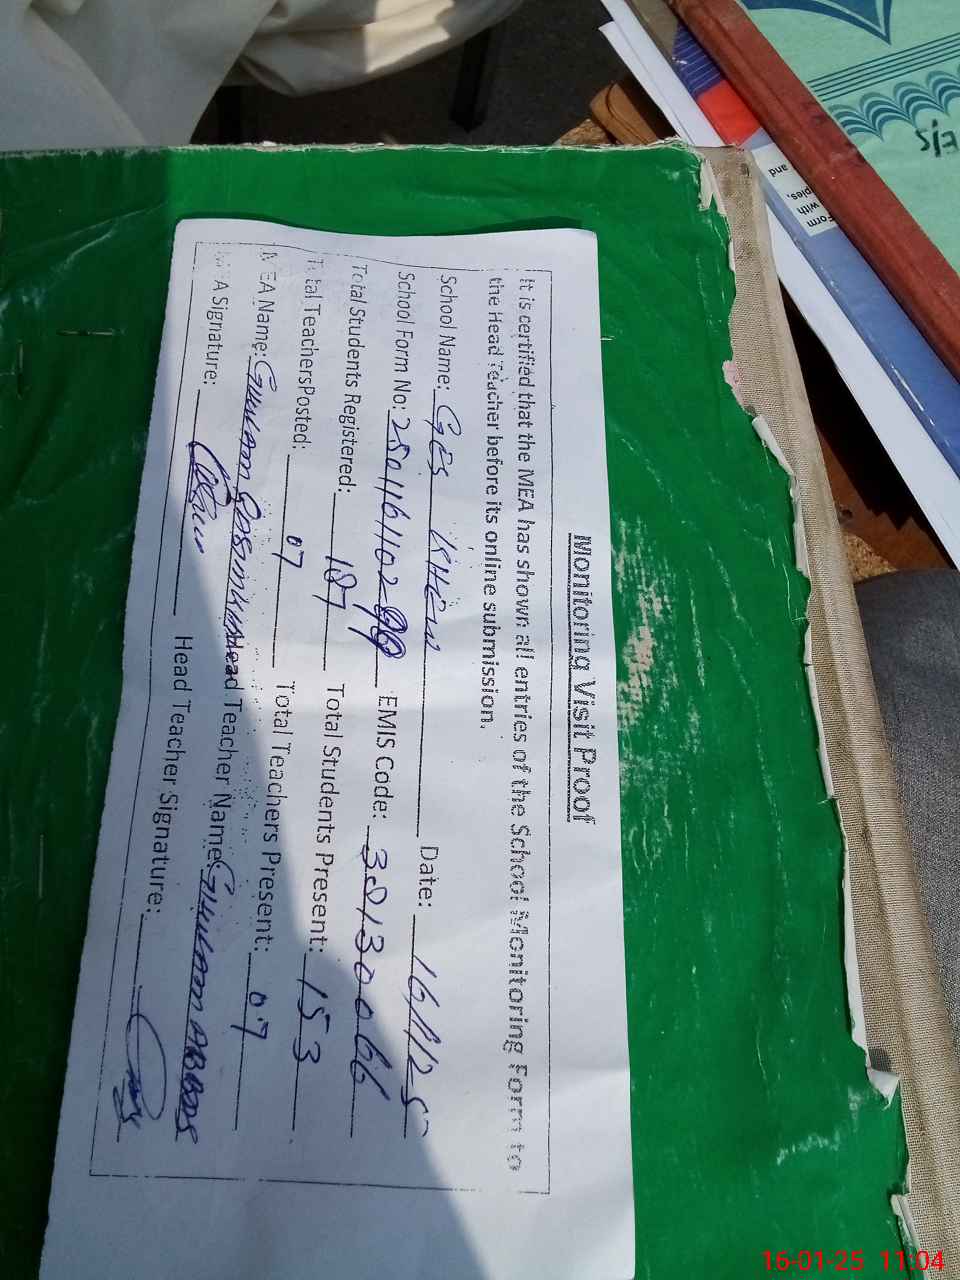 Monitoring Visit Proof
It is certified that the MEA has shown all entries of the School Monitoring Form to
the Head Teacher before its online submission.
School Name: GES Date: 16/1/25
School Form No: EMIS Code: 38130066
Total Students Registered: 187 Total Students Present: 153
Total TeachersPosted: 07 Total Teachers Present: 07
MEA Name: Head Teacher Name: Ghulam ABBAS
MEA Signature: Head Teacher Signature:
Form
with
ples,
and
16-01-25 11:04